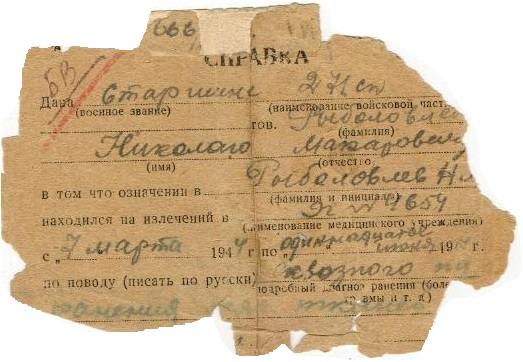 666
СПРАВКА
БВ
Дана Старшине 2 Исп
(военное звание) (наименование войсковой част
тов. Рыболовлев
(фамилия)
Николаю Макарович
(имя) (отчество)
в том что означении в Рыболовлев Н.
(фамилия и инициал
находился на излечений в ЭГ № 1654
(наименование медицинского учреждения)
с „7 марта 1944 по „одиннадцатое июня 19 г.
по поводу (писать по русски) сквозного
подробный диагноз ранения (боле
вмы и т. д.)
ранения